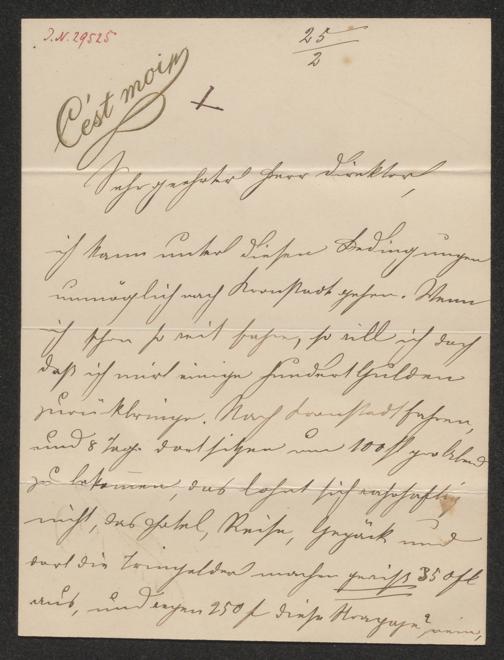 J.N. 29525
25
2
C'est moi
Sehr geehrter Herr Direktor,
ich kann unter diesen Bedingungen
unmöglich nach Kronstadt gehen. Wenn
ich schon so weit fahre, so will ich doch
daß ich mir einige hundert Gulden
zurückbringe. Nach Kronstadt fahren,
und 8 Tage dort sitzen um 100 fl pro Abend
zu bekommen, das lohnt sich wahrhaftig
nicht, das Hotel, Reise, Gepäck und
dort die Trinkgelder machen gewiß 350 fl
aus, und wegen 250 f diese Strapaze? nein,